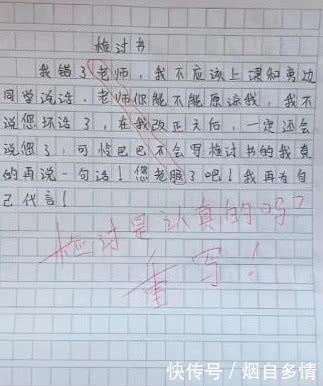 检讨书
我错了老师，我不应该上课和旁边
同学说话，老师你能不能原谅我，我不
说您坏话了，在我改正天后，一定还会
说您了，可怜巴巴不会写检讨书的我真
的再说一句话！您老眼了吧！我再为自
己代言！
检讨是认真的吗？
重写！
快传号/烟自多情